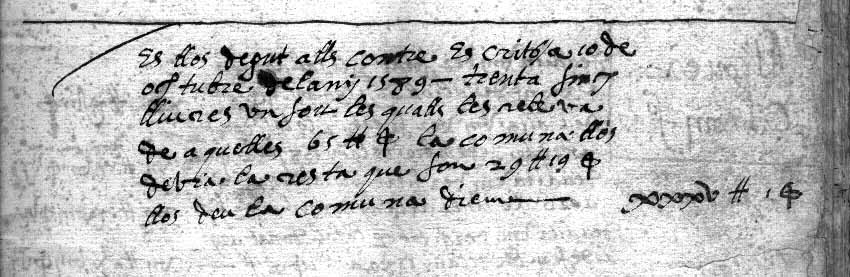 Es llos degut alls contre Es crits a 10 de
octubre de lany 1589 – trenta sinq
lliures un sou les qualls les releva
de aquelles 65 ⁜ la comuna llos
devia la resta que son 29 ⁜ 19
llos deu la comuna diem — xxxv ⁜ 1